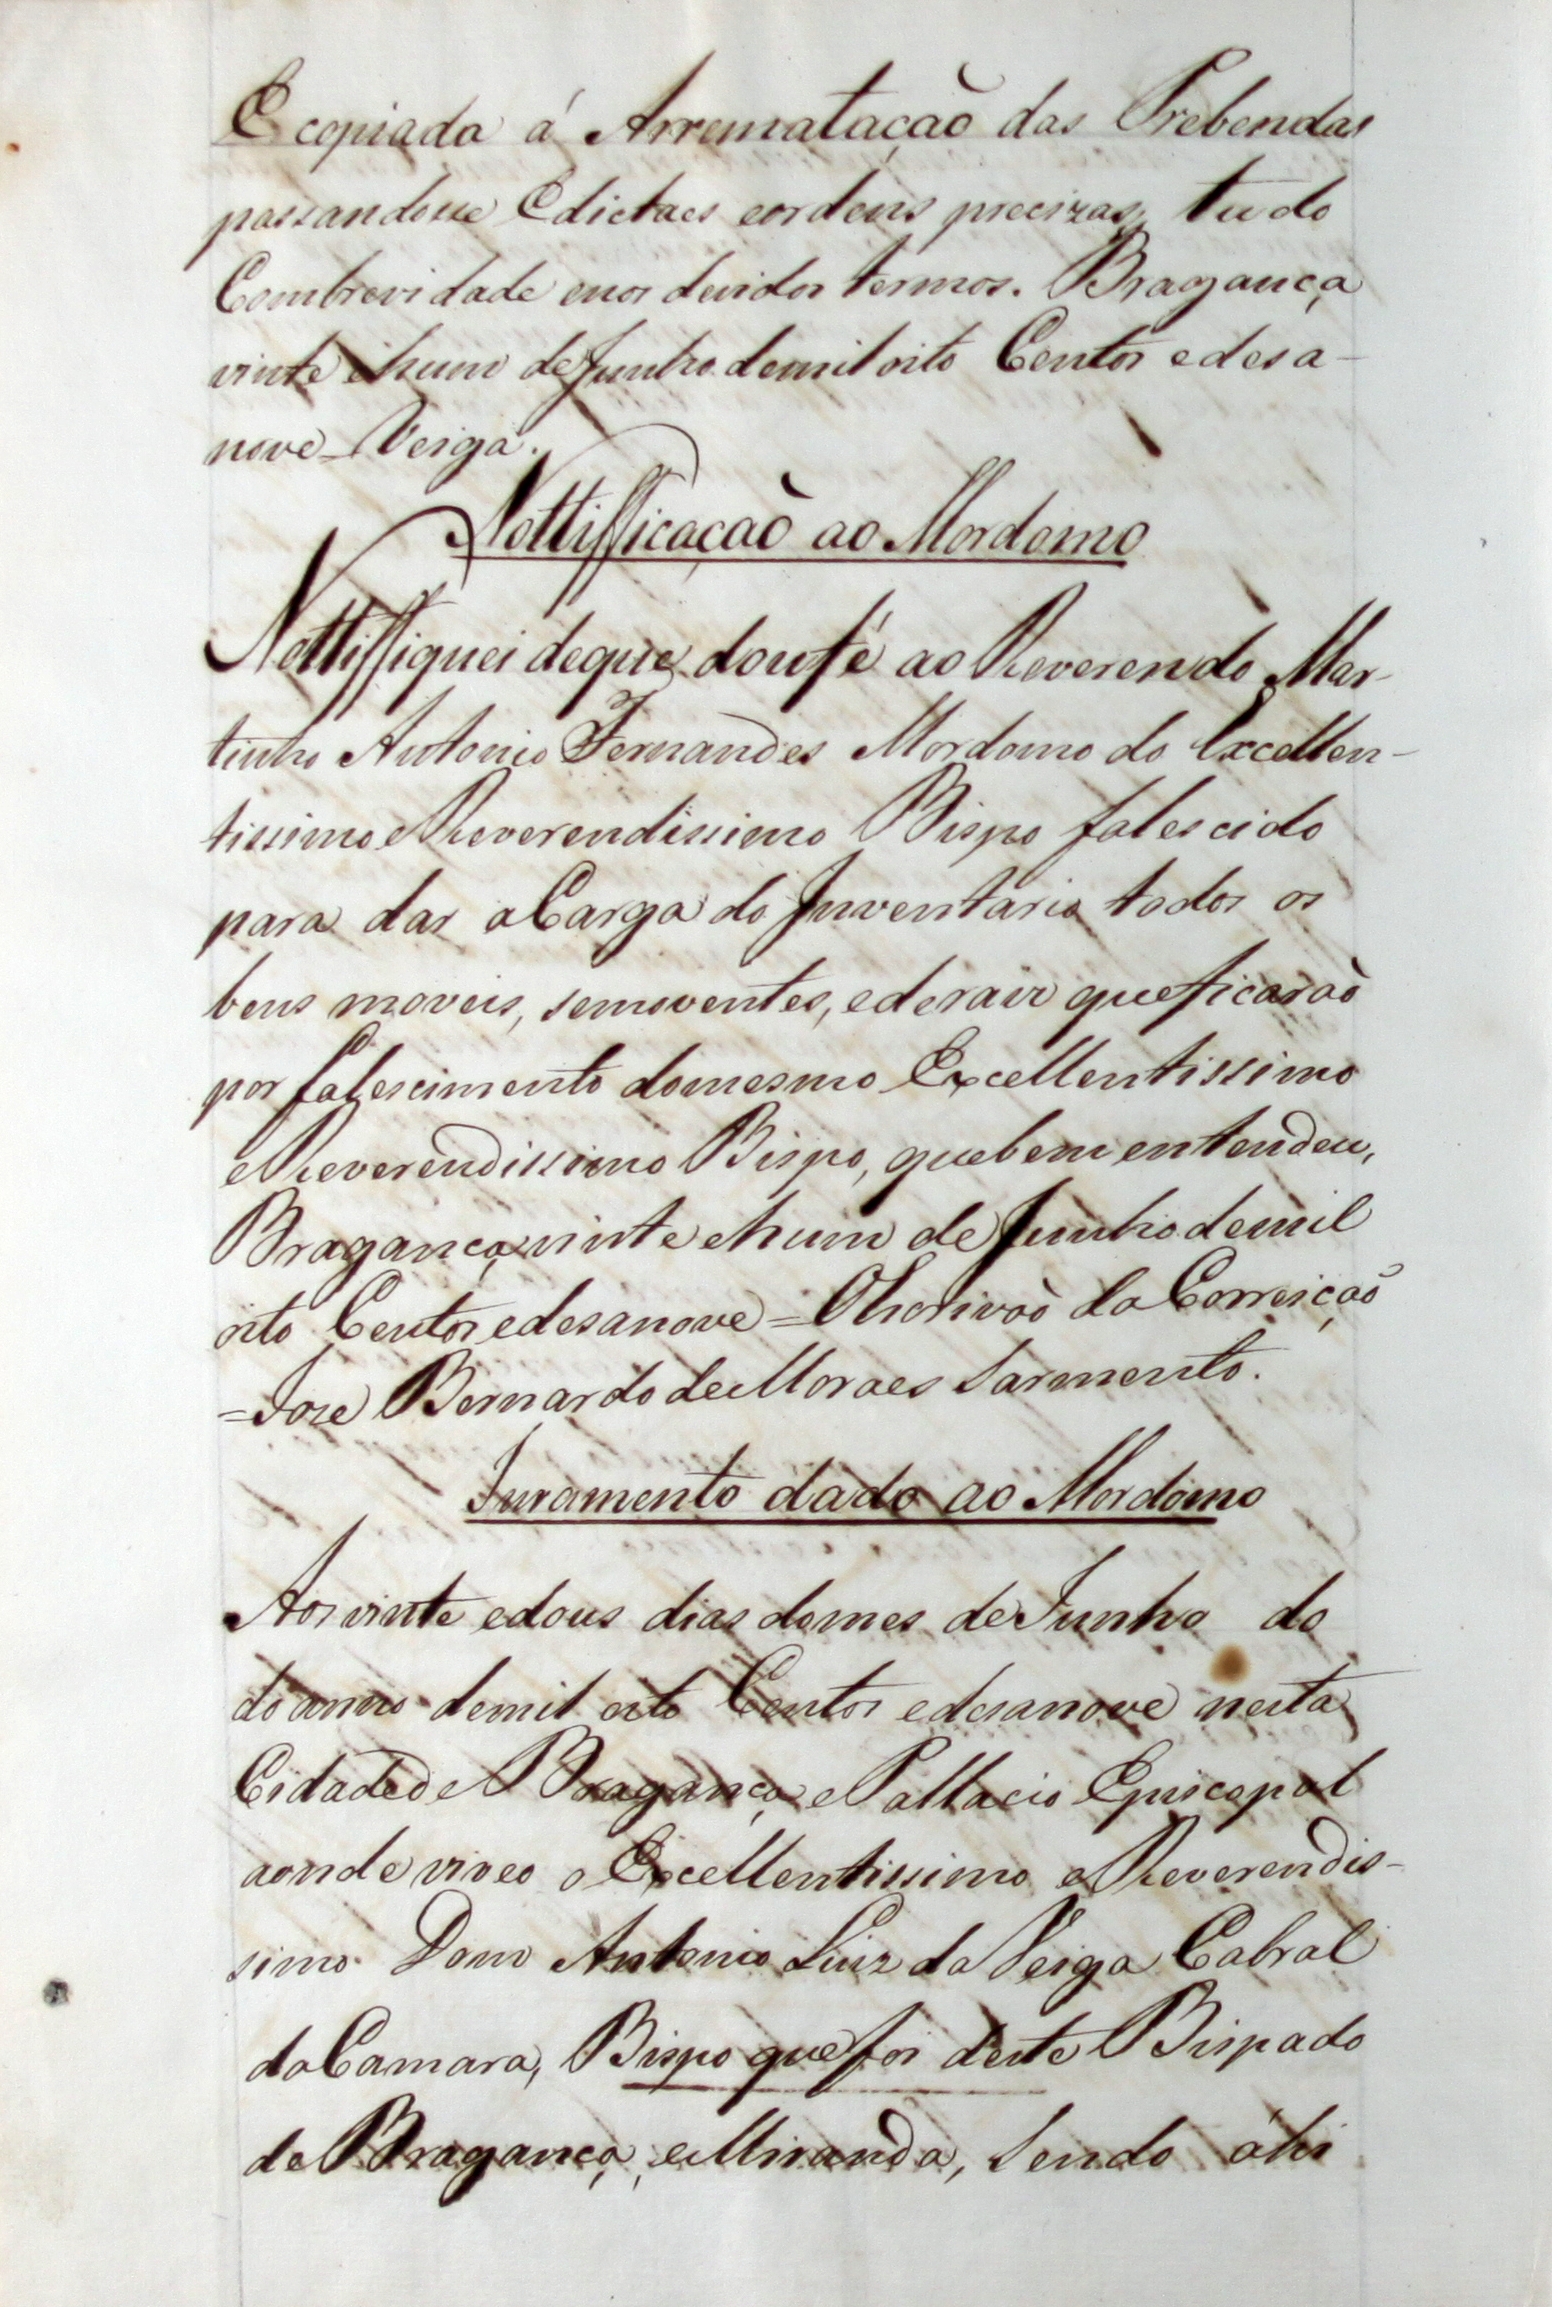 E copiada á Arremataçaò das Prebendas
passandosse Edictaes eordens precizas, tudo
Combrevidade enos devidos termos. Bragança
vinte ehum deJunho demil oito Centos edesa-
nove = Veiga.
Nottifficaçaò ao Mordomo
Nottiffiquei deque doufé ao Reverendo Mar-
tinho Antonio Fernandes Mordomo do Excellen-
tissimo eReverendissimo Bispo falescido
para dar aCarga do Inventario todos os
bens moveis, semoventes, ederaiz queficaraò
por falescimento domesmo Excellentissimo
eReverendissimo Bispo, quebem entendeu,
Bragança vinte ehum de Junho demil
oito Centos edesanove = OEscrivaò da Correiçaò
= Joze Bernardo deMoraes Sarmento.
Juramento dado ao Mordomo
Aos vinte edous dias domes de Junho do
do anno demil oito Centos edesanove nesta
Cidadede Bragança, ePallacio Episcopal
aonde viveo o Excellentissimo eReverendis-
simo Dom Antonio Luiz da Veiga Cabral
daCamara, Bispo quefoi deste Bispado
de Bragança, eMiranda, Sendo áhi